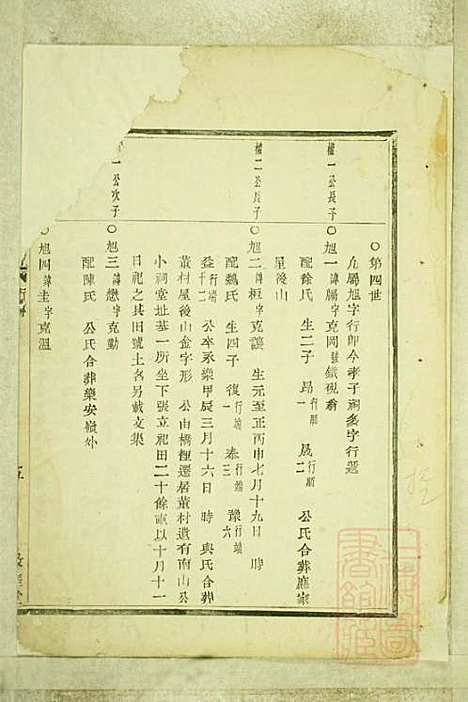 第四世
權一公長子
旭一諱 字克岡號鐵硯翁
配徐氏 生二子 昂行順一 晟行順二 公氏合葬應家
屋後山
權二公長子
旭二諱桓字克讓 生元至正丙申七月十九日 時
配魏氏 生四子 復行端一 泰行端三 豫行端六
益行端十二 公卒永樂甲辰三月十六日 時 與氏合葬
董村屋後山金字形 公由橋 還居董村遺有南山公
小祠堂址基一所坐下張立祀田二十餘畝以十月十一
日祀之其田號土名另載文集
一公次子
旭三諱懋字克勤
配陳氏 公氏合葬樂安嶺外
旭四諱圭字克溫
五